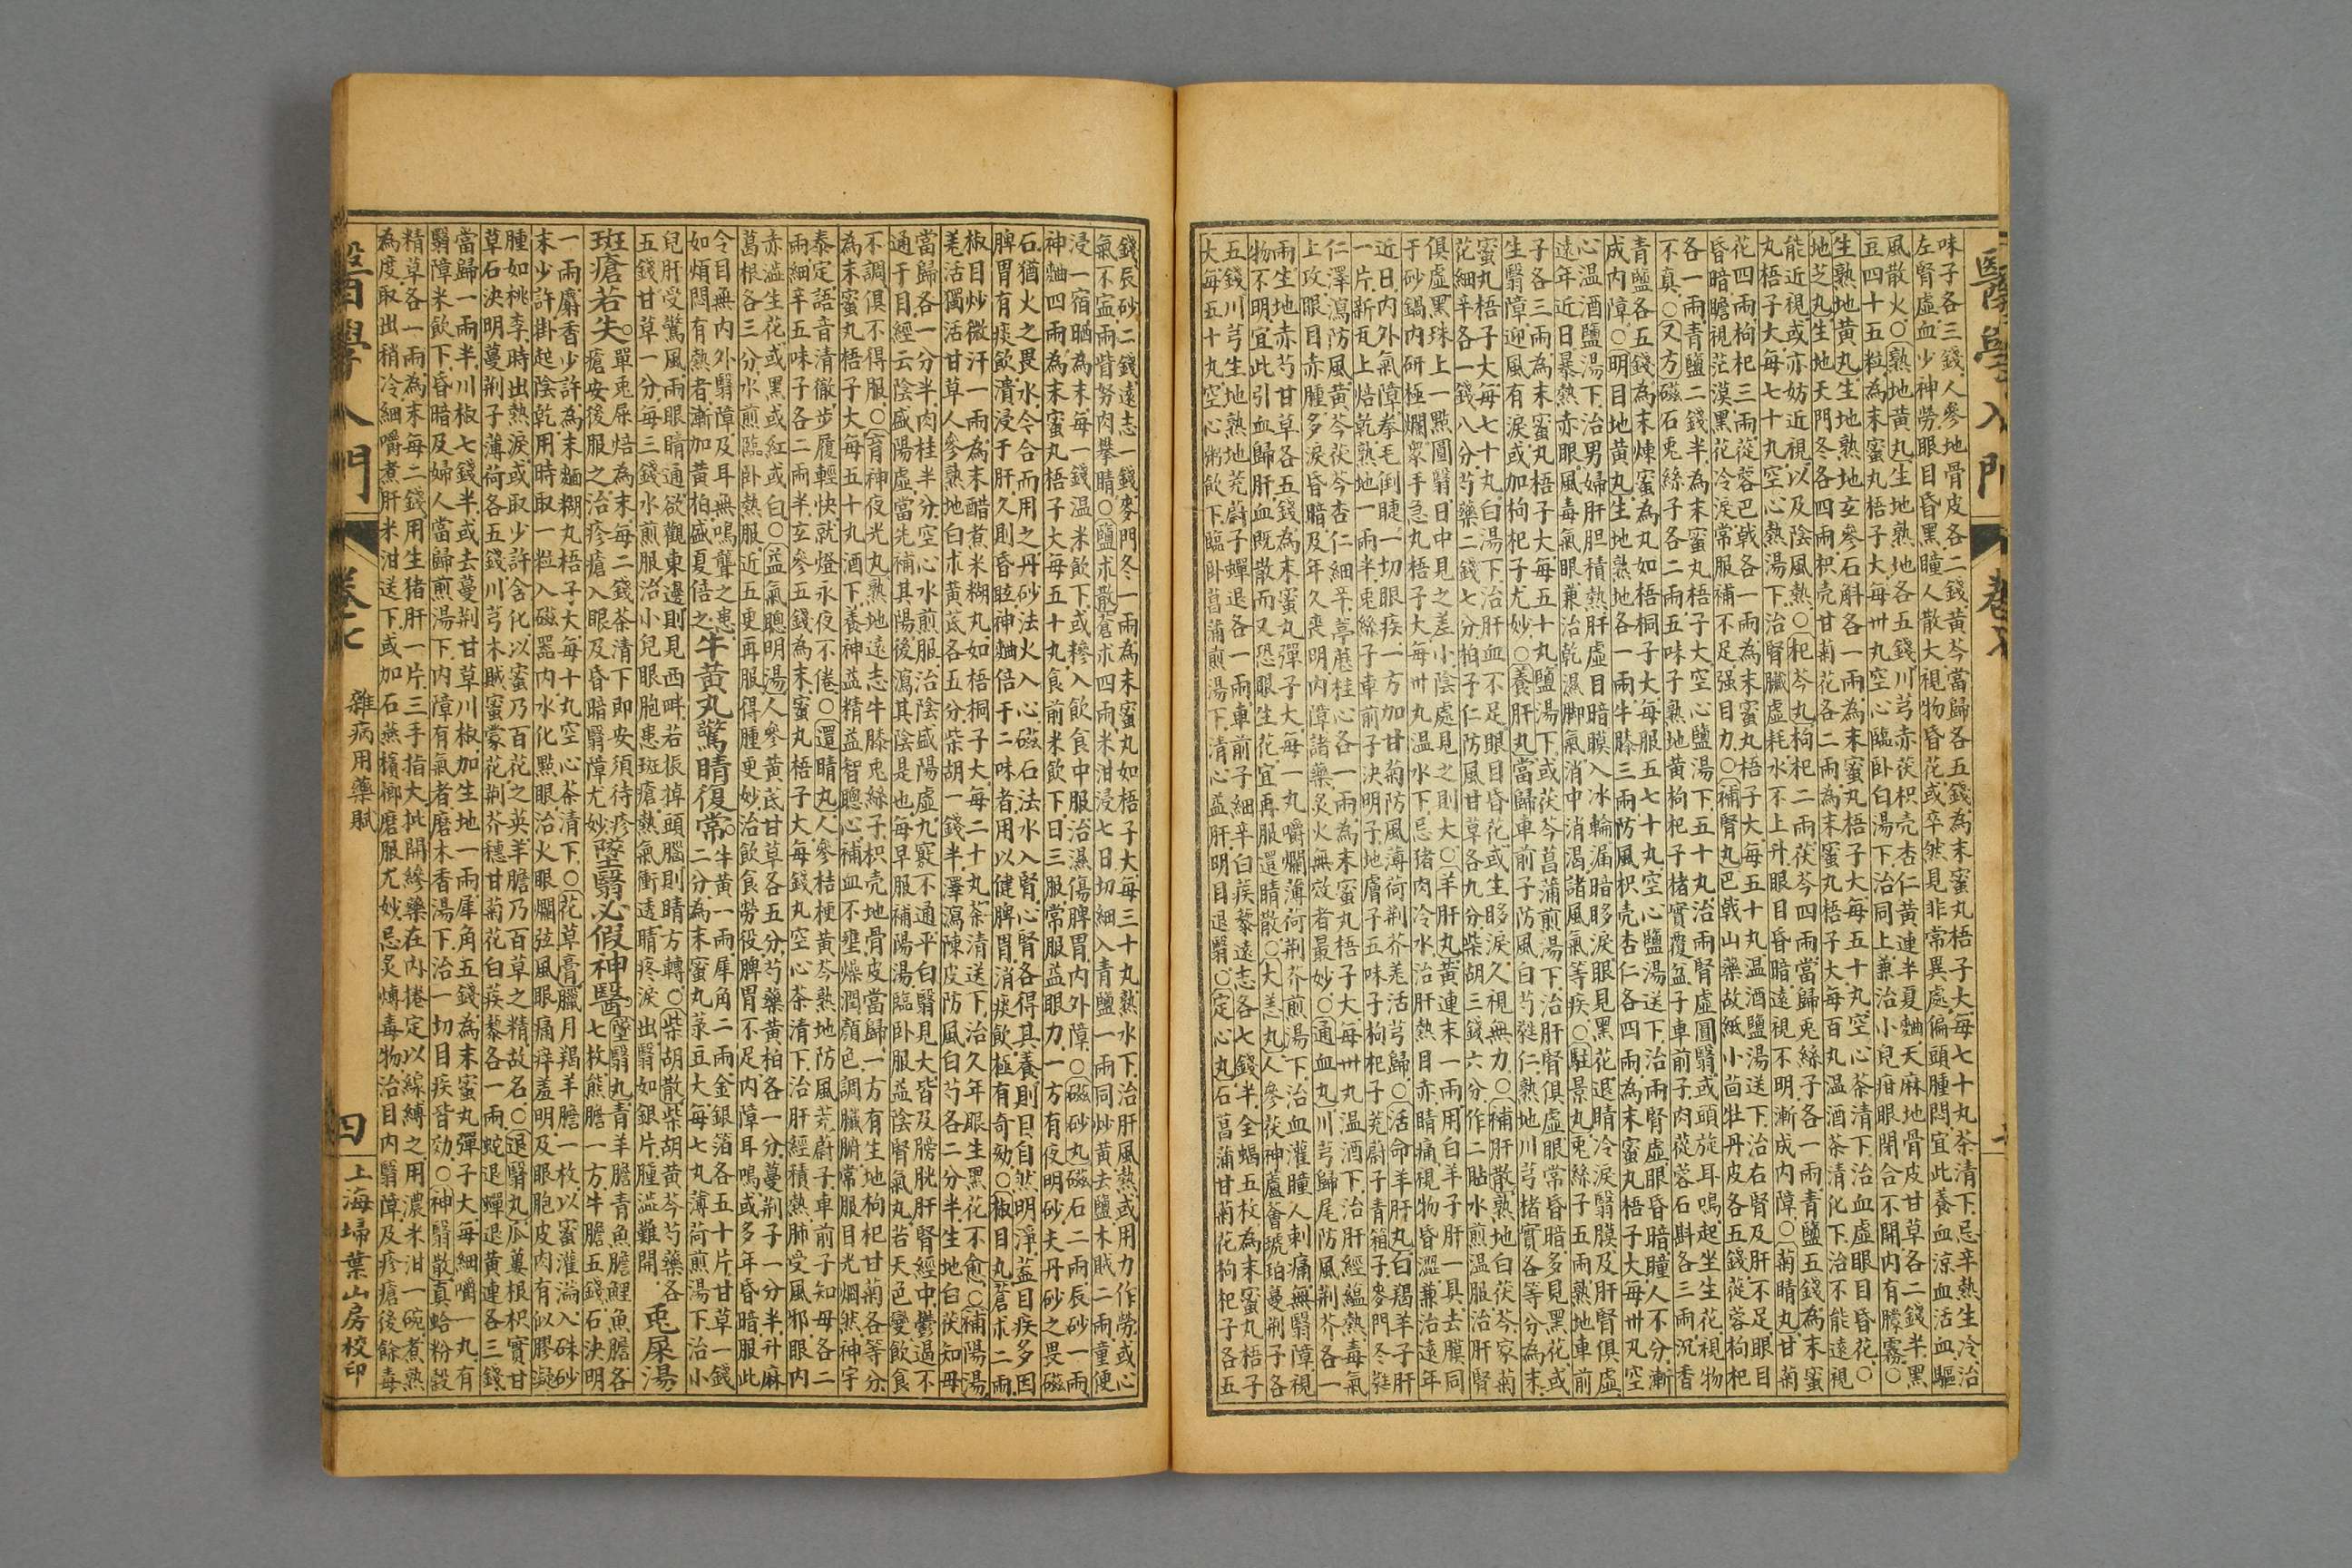 醫學入門
卷七
味子各三錢人參地骨皮各二錢黃芩當歸各五錢為末蜜丸梧子大每七十丸茶清下忌辛熱生冷治
左腎虛血少神勞眼目昏黑瞳人散大視物昏花或卒然見非常異處偏頭腫悶宜此養血涼血活血驅
風散火○熟地黃丸生地熟地各五錢川芎赤茯枳壳杏仁黃連半夏麯天麻地骨皮甘草各二錢半黑
豆四十五粒為末蜜丸梧子大每卅丸空心臨臥白湯下治同上兼治小兒疳眼閉合不開內有朦霧○
生熟地黃丸生地熟地玄參石斛各一兩為末蜜丸梧子大每五十丸空心茶清下治血虛眼目昏花○
地芝丸生地天門冬各四兩枳壳甘菊花各二兩為末蜜丸梧子大每百丸溫酒茶清化下治不能遠視
能近視或亦妨近視以及陰風熱○杞芩丸枸杞二兩茯芩四兩當歸兎絲子各一兩青鹽五錢為末蜜
丸梧子大每七十丸空心熱湯下治腎臟虛耗水不上升眼目昏暗遠視不明漸成內障○菊睛丸甘菊
花四兩枸杞三兩蓯蓉巴戟各一兩為末蜜丸梧子大每五十丸溫酒鹽湯送下治右腎及肝不足眼目
昏暗瞻視茫漠黑花冷淚常服補不足强目力○補腎丸巴戟山藥故紙小茴牡丹皮各五錢蓯蓉枸杞
各一兩青鹽二錢半為末蜜丸梧子大空心鹽湯下五十丸治兩腎虛圓翳或頭旋耳鳴起坐生花視物
不真○又方磁石兎絲子各二兩五味子熟地黃枸杞子楮實覆盆子車前子肉蓯蓉石斛各三兩沉香
青鹽各五錢為末煉蜜為丸如梧桐子大每服五七十丸空心鹽湯送下治兩腎虛眼昏暗瞳人不分漸
成內障○明目地黃丸生地熟地各一兩牛膝三兩防風枳壳杏仁各四兩為末蜜丸梧子大每卅丸空
心溫酒鹽湯下治男婦肝胆積熱肝虛目暗膜入水輪漏暗眵淚眼見黑花退睛冷淚翳膜及肝腎俱虛
遠年近日暴熱赤眼風毒氣眼兼治乾濕脚氣消中消渴諸風氣等疾○駐景丸兎絲子五兩熟地車前
子各三兩為末蜜丸梧子大每五十丸鹽湯下或茯苓菖蒲煎湯下治肝腎俱虛眼常昏暗多見黑花或
生翳障迎風有淚或加枸杞子尤妙○養肝丸當歸車前子防風白芍蕤仁熟地川芎楮實各等分為末
蜜丸梧子大每七十丸白湯下治肝血不足眼目昏花或生眵淚久視無力○補肝散熟地白茯芩家菊
花細辛各一錢八分芍藥二錢七分柏子仁防風甘草各九分柴胡三錢六分作二貼水煎溫服治肝腎
俱虛黑珠上一點圓翳日中見之差小陰處見之則大○羊肝丸黃連末一兩用白羊子肝一具去膜同
于砂鍋內研極爛眾手急丸梧子大每卅丸溫水下忌猪肉冷水治肝熱目赤睛痛視物昏澀兼治遠年
近日內外氣障拳毛倒睫一切眼疾一方加甘菊防風薄荷荆芥羌活芎歸○活命羊肝丸白羯羊子肝
一片新瓦上焙乾熟地一兩半兎絲子車前子決明子地膚子五味子枸杞子茺蔚子青葙子麥門冬蕤
仁澤瀉防風黃芩茯苓杏仁細辛葶藶桂心各一兩為末蜜丸梧子大每卅丸溫酒下治肝經蘊熱毒氣
上攻眼目赤腫多淚昏暗及年久喪明內障諸藥炙火無效者最妙○通血丸川芎歸尾防風荆芥各一
兩生地赤芍甘草各五錢為末蜜丸彈子大每一丸嚼爛薄荷荆芥煎湯下治血灌瞳人刺痛無翳障視
物不明宜此引血歸肝血既散而又恐眼生花宜再服還睛散○大羌丸人參茯神蘆薈琥珀蔓荆子各
五錢川芎生地熟地茺蔚子蟬退各一兩車前子細辛白蒺藜遠志各七錢半全蝎五枚為末蜜丸梧子
大每五十丸空心粥飲下臨臥菖蒲煎湯下清心益肝明目退翳○定心丸石菖蒲甘菊花枸杞子各五
錢辰砂二錢遠志一錢麥門冬一兩為末蜜丸如梧子大每三十丸熟水下治肝風熱或用力作勞或心
氣不寍兩眥努肉攀睛○鹽朮散蒼朮四兩米泔浸七日切細入青鹽一兩同炒黃去鹽木賊二兩童便
浸一宿晒為末每一錢溫米飲下或糝入飲食中服治濕傷脾胃內外障○磁砂丸磁石二兩辰砂一兩
神麯四兩為末蜜丸梧子大每五十丸食前米飲下日三服常服益眼力一方有夜明砂夫丹砂之畏磁
石猶火之畏水今合而用之丹砂法火入心磁石法水入腎心腎各得其養則目自然明淨蓋目疾多因
脾胃有痰飲瀆浸于肝久則昏眩神麯倍于二味者用以健脾胃消痰飲極有奇効○椒目丸蒼朮二兩
椒目炒微汗一兩為末醋煮米糊丸如梧桐子大每二十丸茶清送下治久年眼生黑花不愈○補陽湯
羌活獨活甘草人參熟地白朮黃芪各五分柴胡一錢半澤瀉陳皮防風白芍各二分半生地白茯知母
當歸各一分半肉桂半分空心水煎服治陰盛陽虛九竅不通平白翳見大眥及膀胱肝腎經中鬱遏不
通于目經云陰盛陽虛當先補其陽後瀉其陰是也每早服補陽湯臨臥服益陰腎氣丸若天色變飲食
不調俱不得服○育神夜光丸熟地遠志牛膝兎絲子枳壳地骨皮當歸一方有生地枸杞甘菊各等分
為末蜜丸梧子大每五十丸酒下養神益精益智聰心補血不壅燥潤顏色調臟腑常服目光烱然神宇
泰定語音清徹步履輕快就燈永夜不倦○還睛丸人參桔梗黃芩熟地防風茺蔚子車前子知母各二
兩細辛五味子各二兩半玄參五錢為末蜜丸梧子大每錢丸空心茶清下治肝經積熱肺受風邪眼內
赤澁生花或黑或紅或白○益氣聰明湯人參黃芪甘草各五分芍藥黃柏各一分蔓荆子一分半升麻
葛根各三分水煎臨卧熱服近五更再服得腫更妙治飲食勞役脾胃不足內障耳鳴或多年昏暗服此
令目無內外翳障及耳無鳴聾之患
如煩悶有熱者漸加黃柏盛夏倍之牛黃丸驚睛復常牛黃一兩犀角二兩金銀箔各五十片甘草一錢
二分為末蜜丸菉豆大每七丸薄荷煎湯下治小
兒肝受驚風兩眼睛通欲觀東邊則見西畔若振掉頭腦則睛方轉○柴胡散柴胡黃芩芍藥各
五錢甘草一分每三錢水煎服治小兒眼胞患斑瘡熱氣衝透睛疼淚出翳如銀片腫澁難開兎屎湯
斑瘡若失單兎屎焙為末每二錢茶清下即安須待疹
瘡安後服之治疹瘡入眼及昏暗翳障尤妙墜翳必假神醫墜翳丸青羊膽青魚膽鯉魚膽各
七枚熊膽一方牛膽五錢石決明
一兩麝香少許為末麵糊丸梧子大每十丸空心茶清下○花草膏臘月羯羊膽一枚以蜜灌滿入硃砂
末少許掛起陰乾用時取一粒入磁器內水化點眼治火眼爛弦風眼痛痒羞明及眼胞皮肉有似膠凝
腫如桃李時出熱淚或取少許含化以蜜乃百花之英羊膽乃百草之精故名○退翳丸瓜蔞根枳實甘
草石決明蔓荆子薄荷各五錢川芎木賊蜜蒙花荆芥穗甘菊花白蒺藜各一兩蛇退蟬退黃連各三錢
當歸一兩半川椒七錢半或去蔓荆甘草川椒加生地一兩犀角五錢為末蜜丸彈子大每細嚼一丸有
翳障米飲下昏暗及婦人當歸煎湯下內障有氣者磨木香湯下治一切目疾皆効○神翳散真蛤粉穀
精草各一兩為末每二錢用生猪肝一片三手指大批開糝藥在內捲定以線縛之用濃米泔一碗煮熟
為度取出稍冷細嚼煮肝米泔送下或加石燕檳榔磨服尤妙忌炙煿毒物治目內翳障及疹瘡後餘毒
醫學入門
卷七
雜病用藥賦
四
上海埽葉山房校印